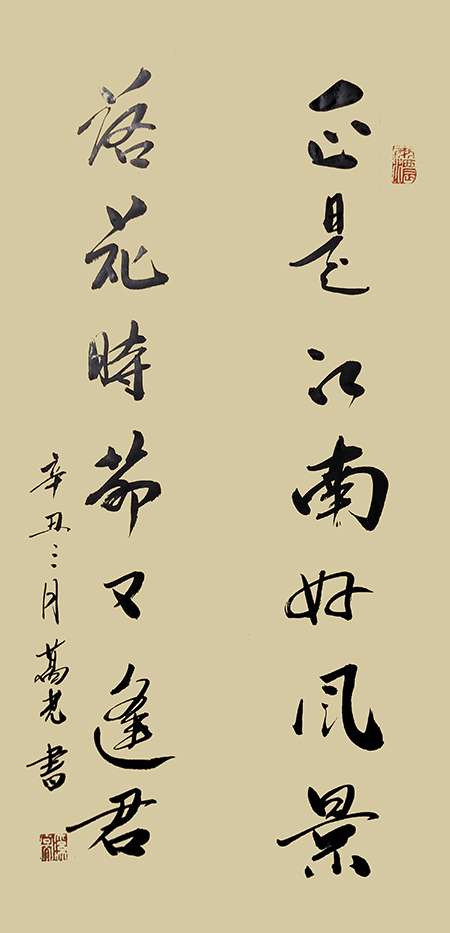 正是江南好风景
落花時節又逢君
辛丑三月 萬光書